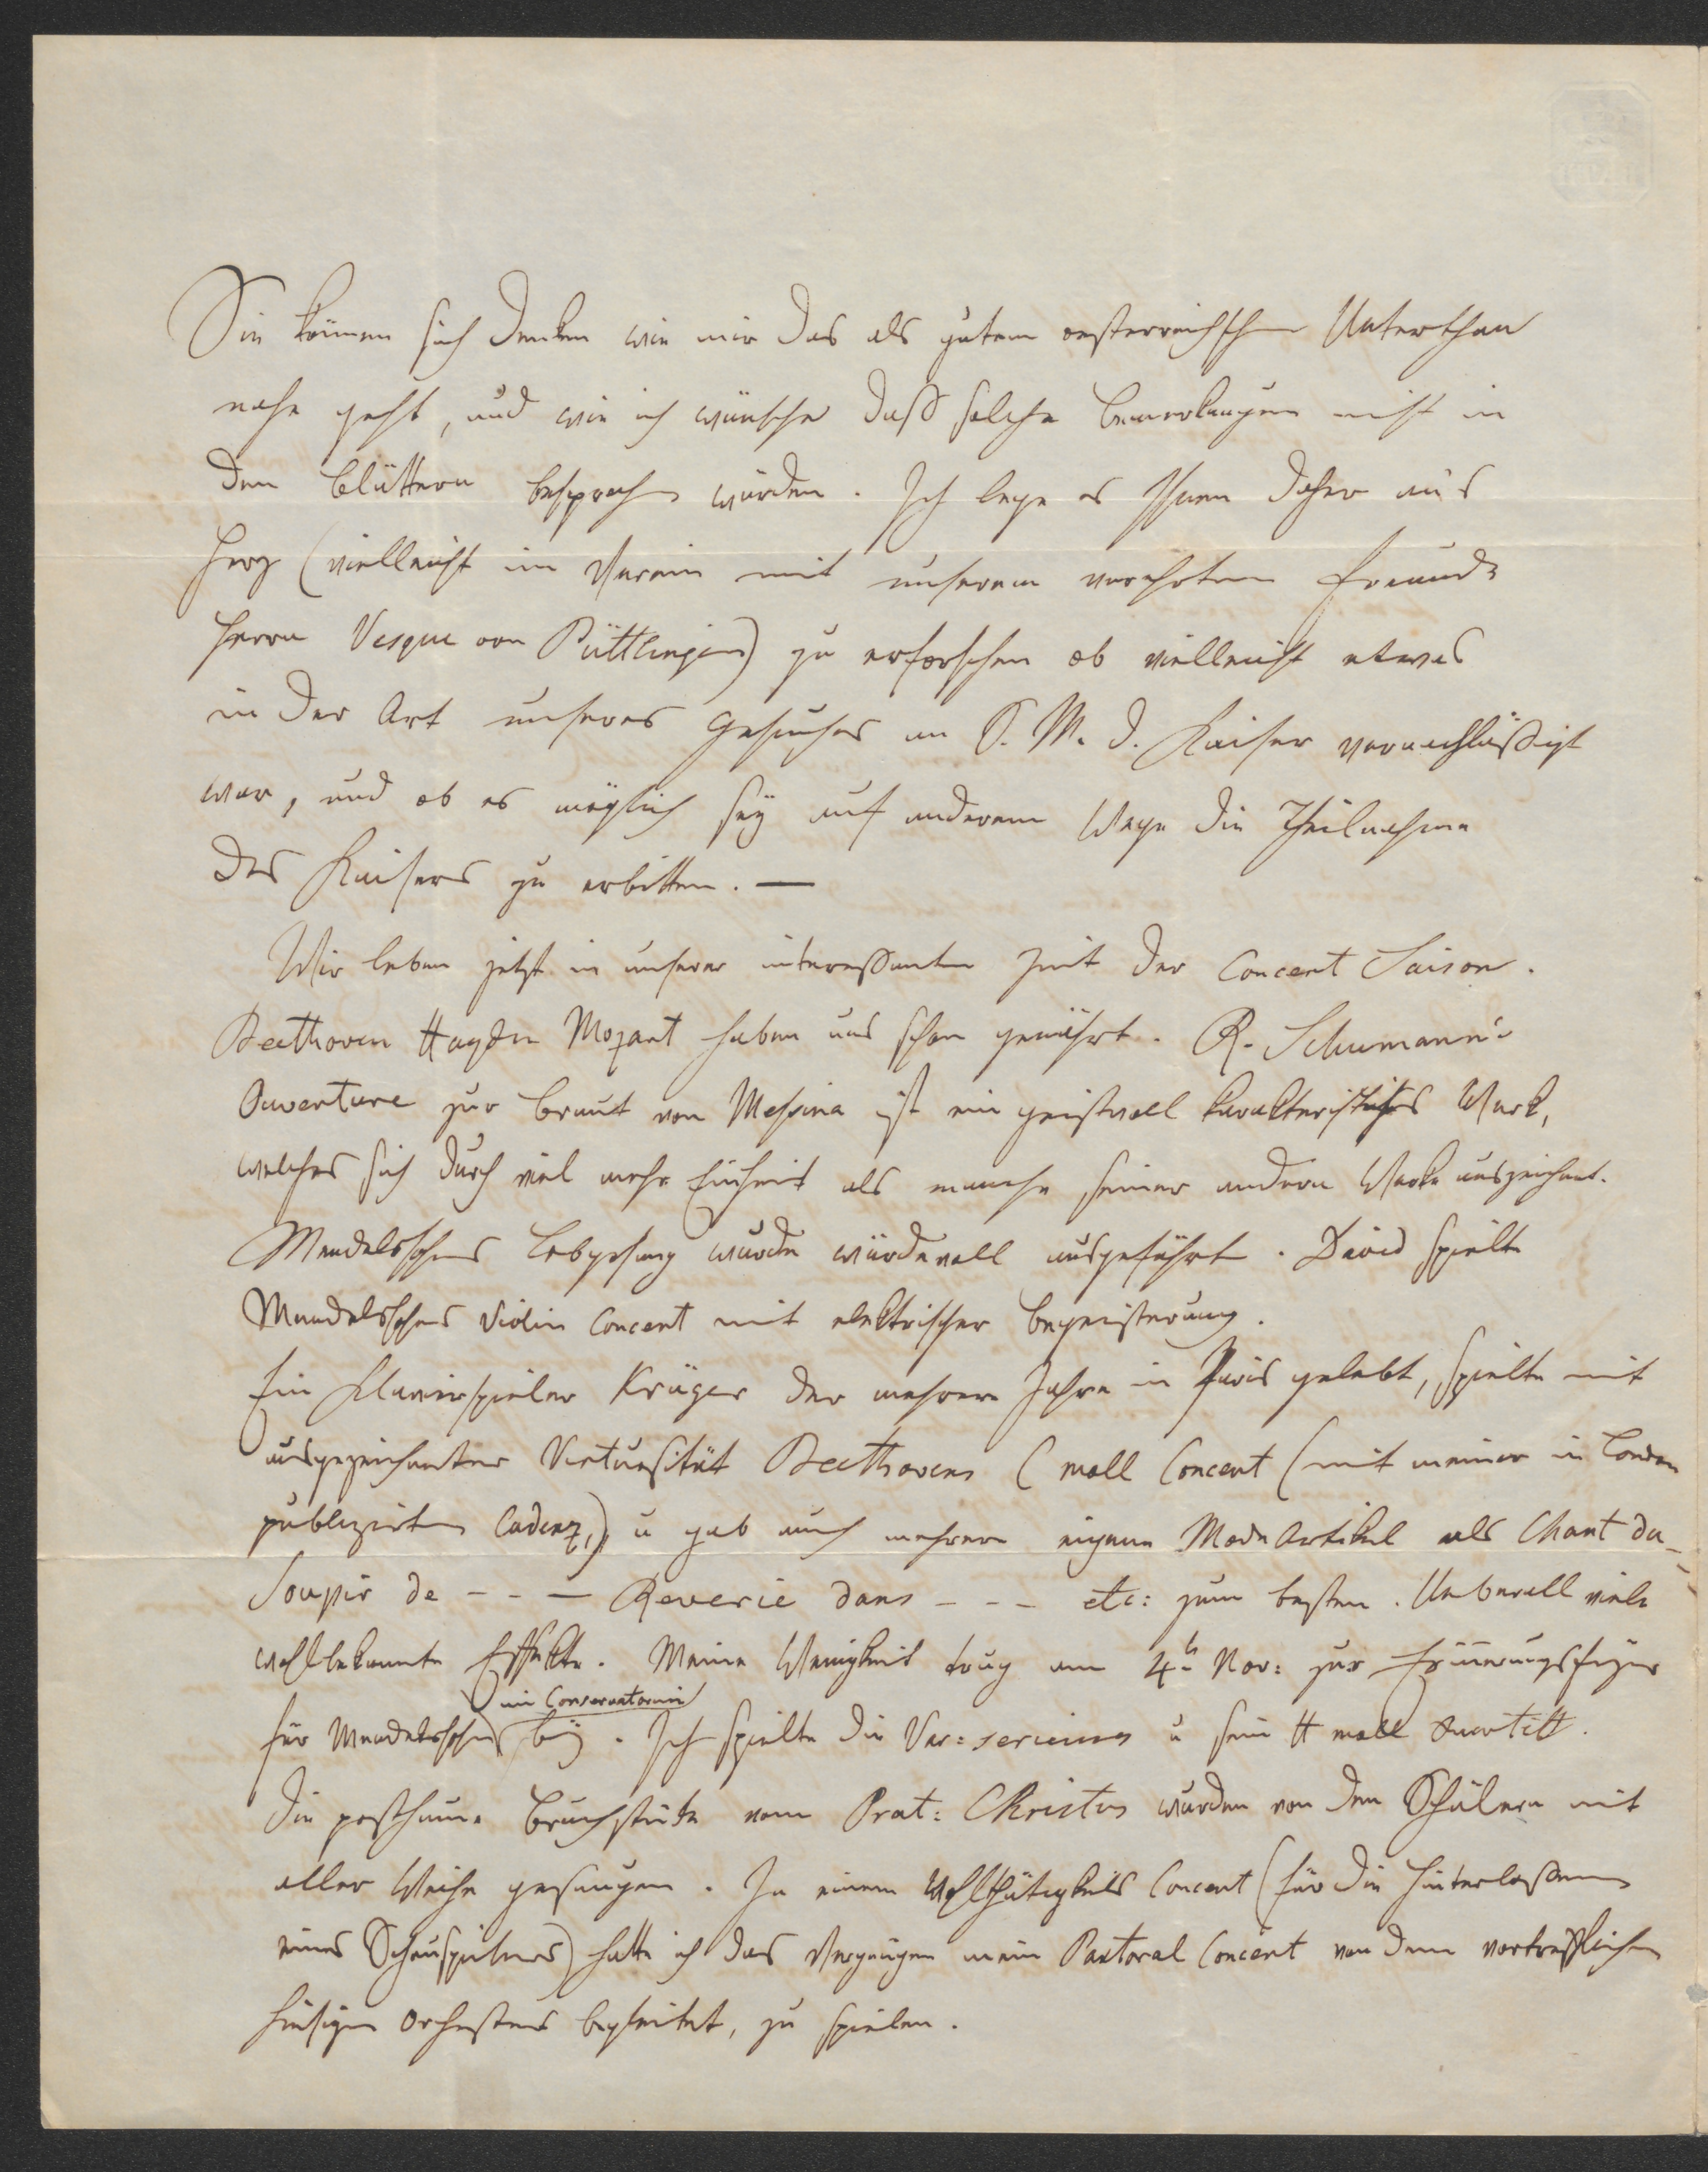 Sie können sich denken wie mir das als gutem oesterreichschen Unterthan
nahe geht, und wie ich wünsche daß solche Bemerkungen nicht in
den Blättern besprochen würden. Ich lege es Ihnen daher an's
Herz (vielleicht im Verein mit unserem verehrten Freunde
Herrn Vesque von Püttlingen) zu erforschen ob vielleicht etwas
in der Art unseres Gesuches an S. M. d. Kaiser vernachläßigt
war, und ob es möglich sey auf anderem Wege die Theilnahme
des Kaisers zu erbitten. —
Wir leben jetzt in unserer interessanten Zeit der Concert Saison.
Beethoven Haydn Mozart haben uns schon genährt. R. Schumann's
Ouverture zur Braut von Messina ist ein geistvoll karakteristisches Werk,
welches sich durch viel mehr Einheit als manche seiner andern Werke auszeichnet.
Mendelssohns Lobgesang wurde würdevoll ausgeführt. David spielte
Mendelssohns Violin Concert mit elektrischer Begeisterung.
Ein Klavierspieler Krüger der mehrere Jahre in Paris gelebt, spielte mit
ausgezeichneter Virtuosität Beethovens C moll Concert (mit meiner in London
publizirten Cadenz,) u gab auch mehrere eigene Mode Artikel als Chant du - -
Soupir de - - - Reverie dans - - - etc: zum besten. Ueberall viele
wohlbekannte Effekte. Meine Wenigkeit trug am 4t Nov: zur Erinnerungsfeyer
für Mendelssohn im Conservatorium bey. Ich spielte die Var: serieuses u sein H moll Quartett.
Die posthume Bruchstücke vom Orat: Christus wurden von den Schülern mit
aller Weihe gesungen. In einem Wohlthätigkeits Concert (für die Hinterlaßenen
eines Schauspielers) hatte ich das Vergnügen mein Pastoral Concert von dem vortrefflichen
hiesigen Orchester begleitet, zu spielen.